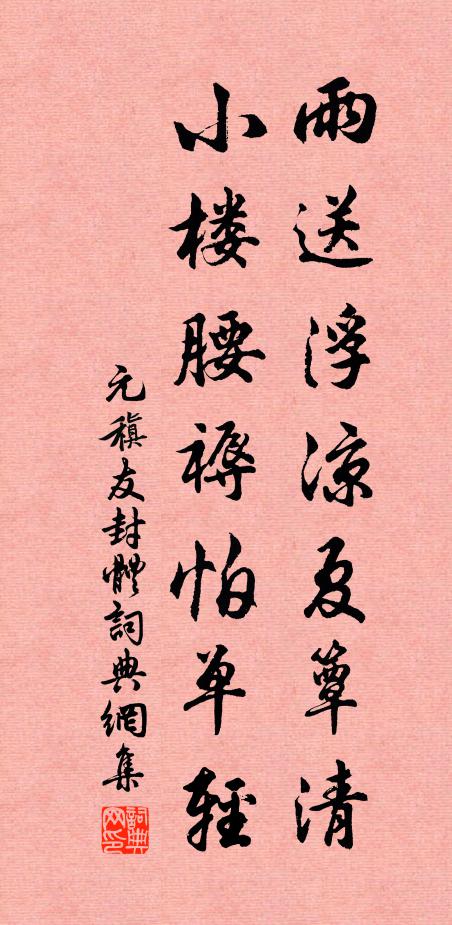 雨送浮涼夏簟清
小楼腰褥怕单輕
元稹友封體詞典網集
詞典网印